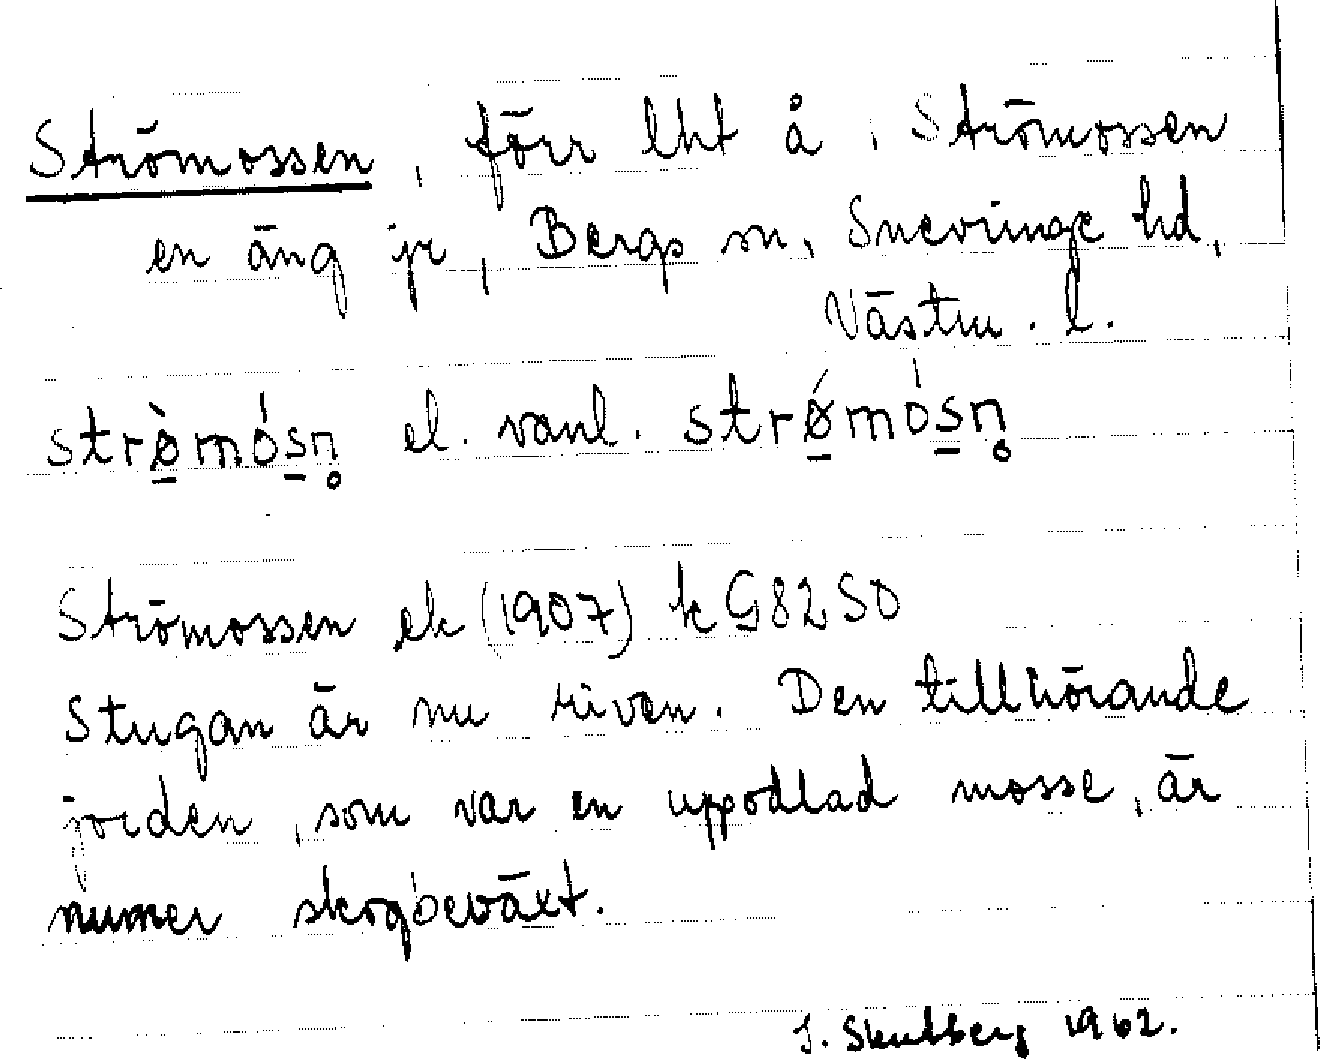 Strömossen, förr lht å, Strömossen
en äng jr, Bergs sn, Snevringe hd,
Västm. l.
strø̀mósn̥ el. vanl. strǿmósn̥
Strömossen ek (1907) k G82SO
Stugan är nu riven. Den tillhörande
jorden, som var en uppodlad mosse, är
numer skogbeväxt.
1962.